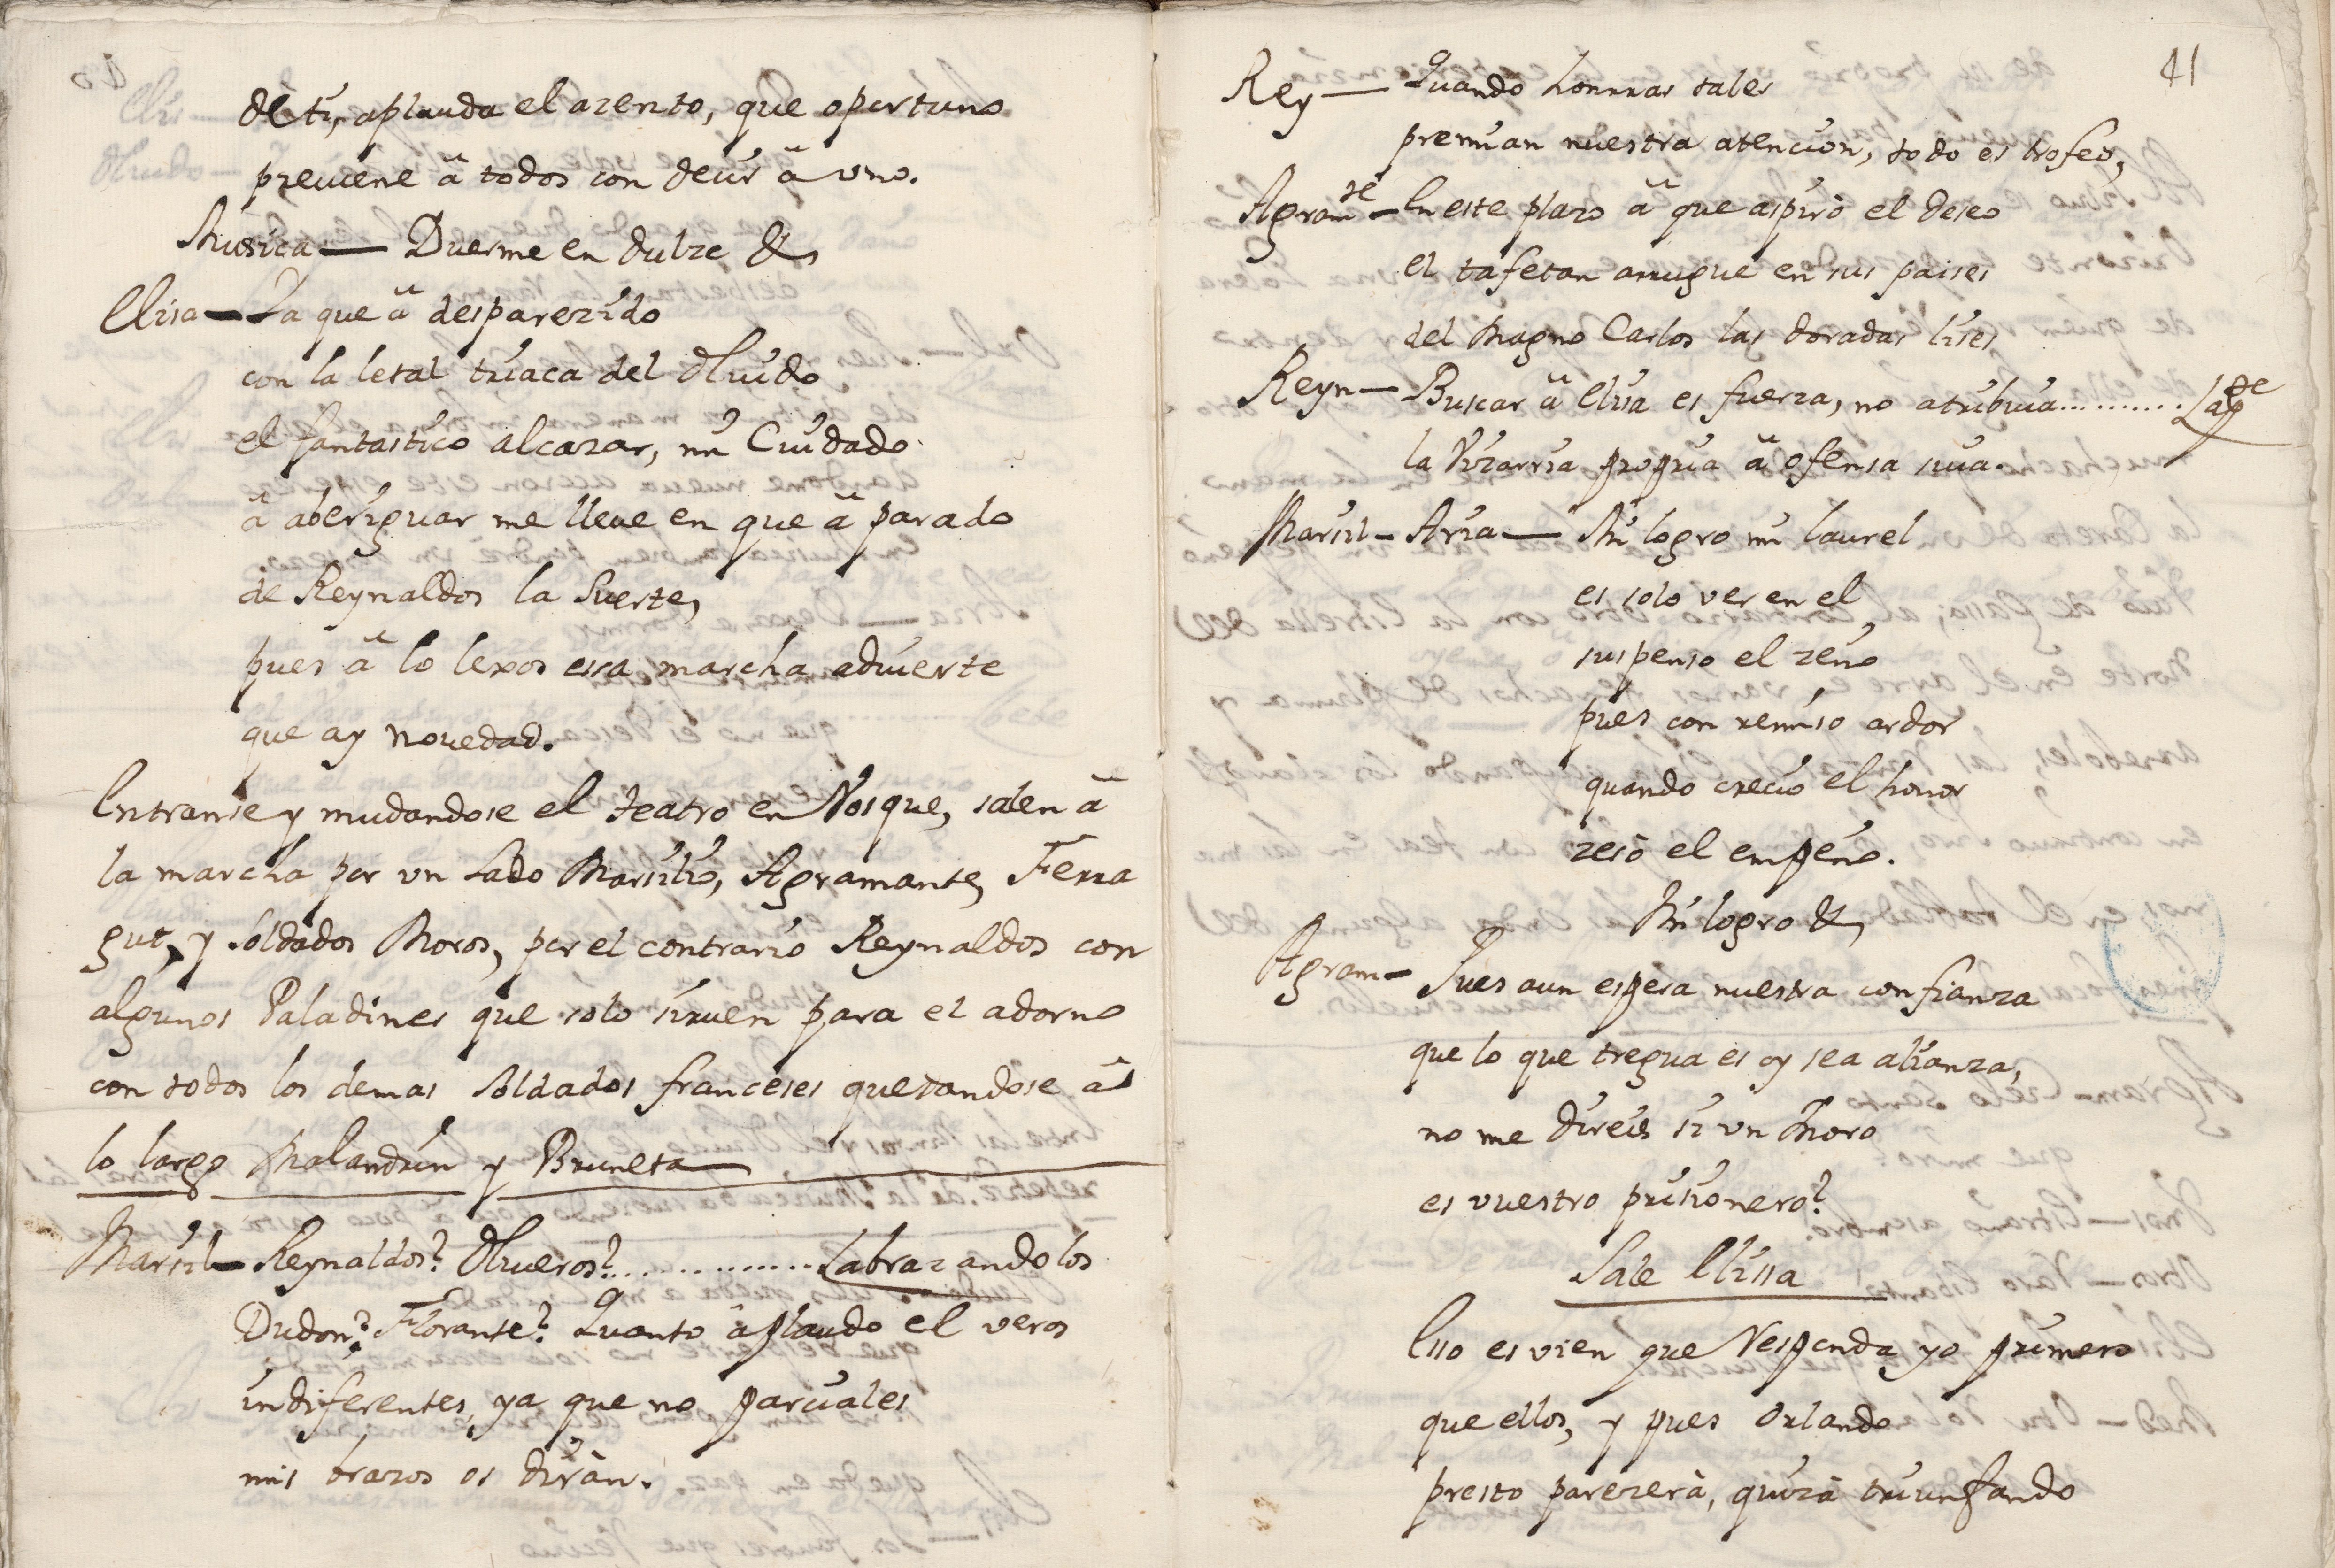 de ti, aplauda el azento, que oportuno
preuiene â todos con decir â vno.
Musica — Duerme en dulze &
Elisa — Ya que â desparezido
con la letal triaca del Oluido
el fantastico alcazar, mi Cuidado
â aberiguar me lleue en que â parado
de Reynaldos la Suerte,
pues â lo lexos essa marcha aduierte
que ay nouedad.
Entranse y mudandose el teatro en Vosque, salen â
la marcha por vn Lado Marsilio, Agramante, Ferra
gut, y Soldados Moros, por el contrario Reynaldos con
algunos Paladines que solo siruen para el adorno
con todos los demas Soldados franceses quedandose â
lo largo Malandrin y Bruneta
Marsil — Reynaldos? Oliueros? .............. abrazandolos
Dudon? Florante? Quanto âplaudo el veros
indiferentes, ya que no parciales
mis brazos os diràn.
41
Rey — Quando honrras tales
premian nuestra atencion, todo es trofeo,
Agram.te — En este plazo â que aspirò el deseo
el tafetan arrugue en sus paises
del Magno Carlos las doradas lises
Reyn — Buscar â Elisa es fuerza, no atribuia ..........
la Vizarria propria â ofensa suia.
Marsil — Aria — Mi logro mi laurel
es solo ver en el
suspenso el zeño
pues con remiso ardor
quando crecio el honor
zesò el empeño.
Mi logro &
Agram — Pues aun espera nuestra confianza
que lo que tregua es oy sea alianza,
no me direis si vn Moro
es vuestro prisionero?
Sale Elissa
Esso es vien que Responda yo primero
que ellos, y pues Orlando
presto parezerà, quizà triunfando